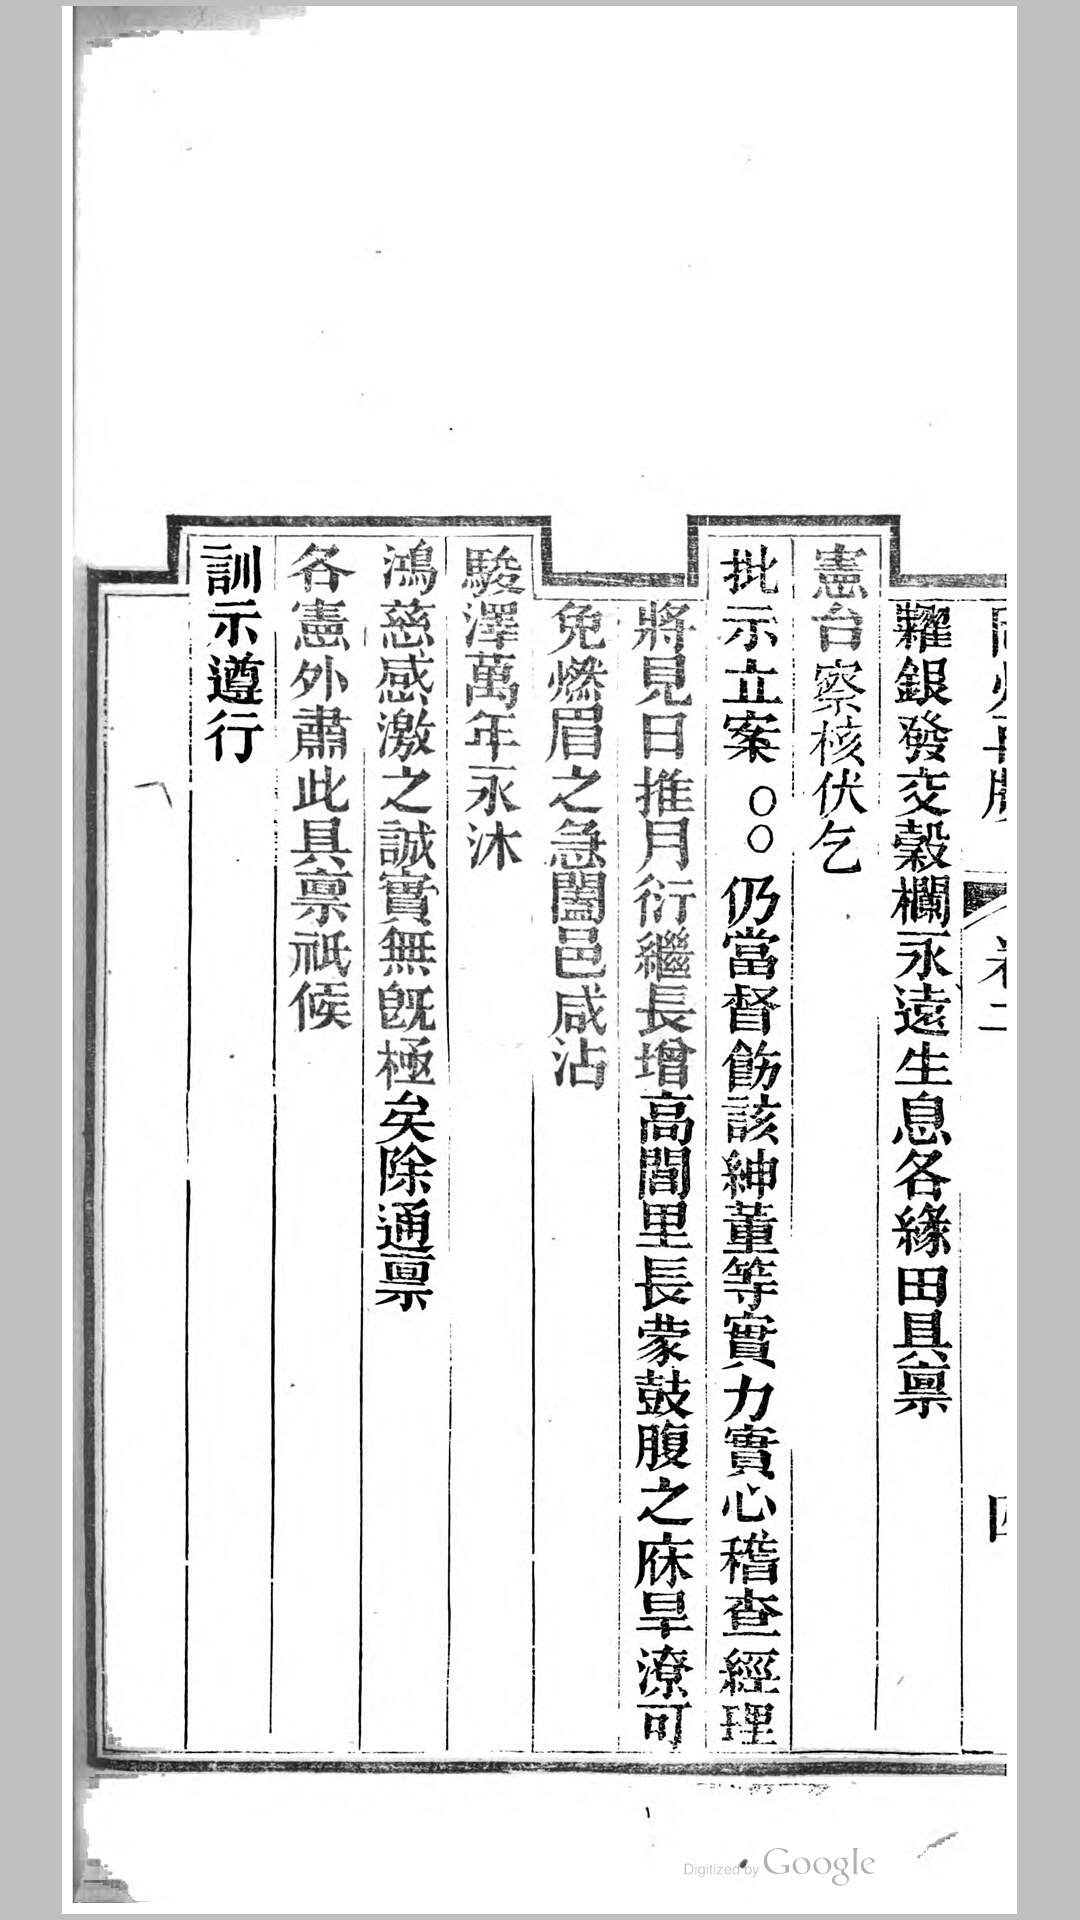 卷二
糶銀發交穀欄永遠生息各緣田具禀
憲台察核伏乞
批示立案○○仍當督飭該紳董等實力實心稽查經理
將見日推月衍繼長增高閭里長蒙鼓腹之庥旱潦可
免燃眉之急闔邑咸沾
駿澤萬年永沐
鴻慈感激之誠實無旣極矣除通禀
各憲外肅此具禀祇候
訓示遵行
Digitized by Google